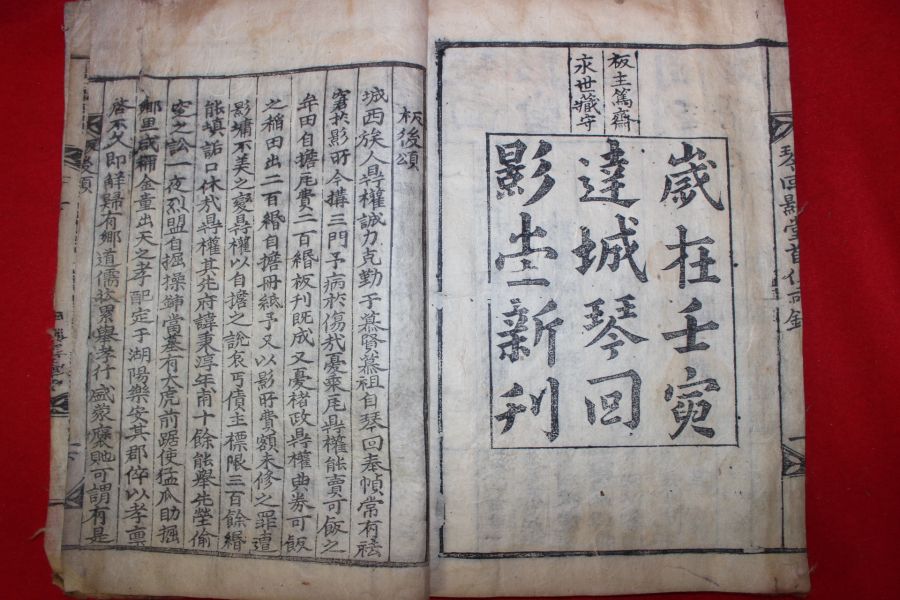 板主篤齋
永世藏守
歲在壬寅
達城琴回
影堂新刊
板後頌
城西族人鼎權誠力克勤于慕賢慕祖自琴回奉幀常有
影所今搆三門予病於傷哉憂乘鼎權能賣可飯之
牟田自擔費二百緡板刊既成又憂楮政鼎權典券可飯
之稻田出二百緡自擔冊紙予又以影所費額未修之罪遭
影墉不美之變鼎權以自擔之說哀丐債主標限三百餘緡
能塡詬口休哉鼎權其先府諱東淳年甫十餘能擧先塋偷
之訟一夜烈盟自掘操當墓有大虎前踞使猛爪助掘
鄉里咸稱金童出天之孝配定于湖陽樂安其郡倅以孝稟
營不久即解歸有鄉道儒狀累擧孝行盛蒙褒貤可謂有是